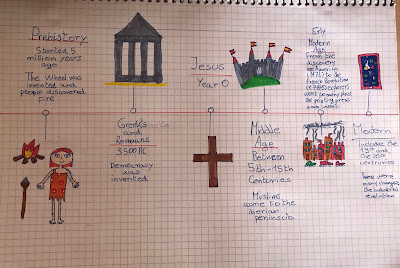 Prehistory
Started 5
million years
ago
The Wheel was
invented and
people discovered
fire
Greeks
and
Romans
3500 BC
Democracy
was
invented
Jesus
Year 0
Middle
Age
Between
5th-15th
Centuries
Muslims
came to the
Iberian
peninsula
Early
Modern
Age
From the
discovery
to the
French Revolution
the printing press
Modern
Includes the
19th and
the 20th
centuries
There were
many changes
the industrial
revolution